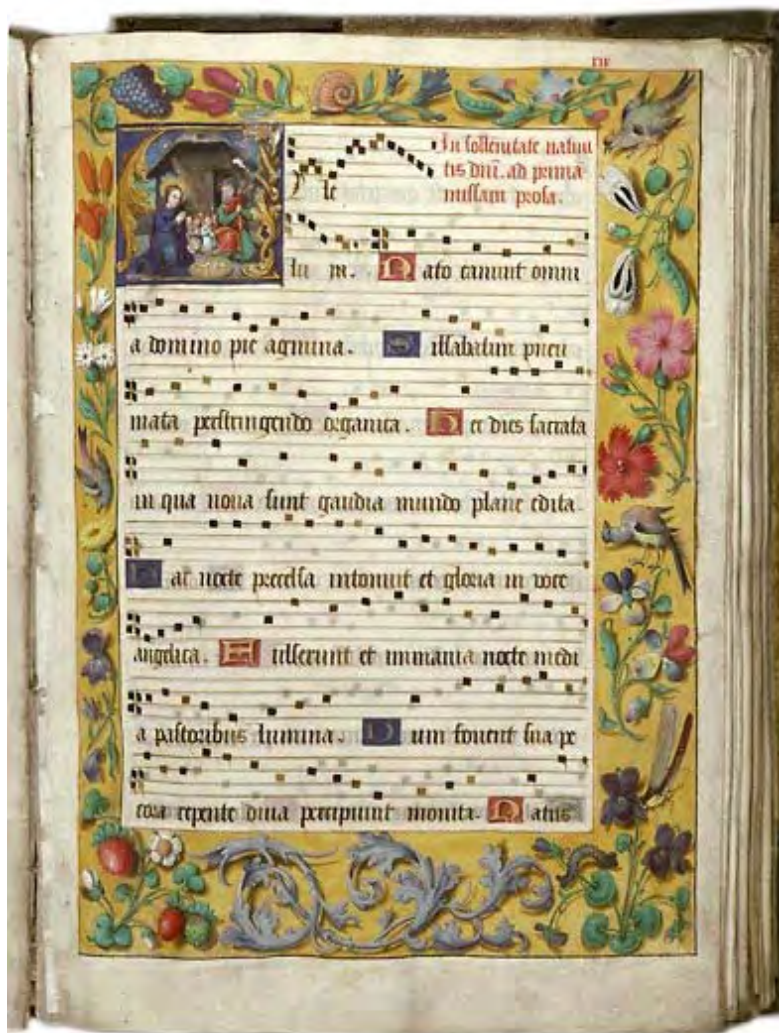 In sollenitate natiui
tis dñi. ad primā
missam prosa.
Alle
lu ia. Nato canunt omni
a domino pie agmina. Sillabatim pneu
mata perstringendo organica. Hec dies sacrata
in qua noua sunt gaudia mundo plane edita.
Hac nocte precelsa intonuit et gloria in voce
angelica. Fulserunt et immania nocte medi
a pastoribus lumina. Dum fouent sua pe
cora repente diua percipiunt monita. Natus